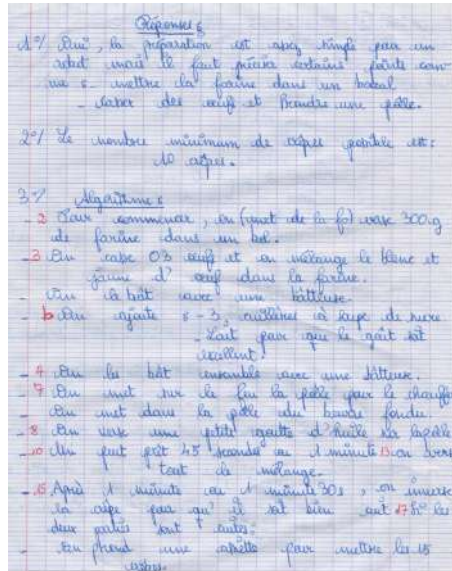 Réponses
1°/ Oui, la préparation est assez simple pour un
robot mais il faut préciser certains points com-
me : - mettre la farine dans un bocal
- casser des œufs et Prendre une pôele.
2°/ Le nombre minimum de crêpes possible est :
10 crêpes.
3°/ Algorithme :
- 2 Pour commencer, on (met de la fa) verse 300 g
de farine dans un bol.
- 3 On casse 03 œufs et on mélange le blanc et
jaune d'œuf dans la farine.
- On la bât avec une bâtteuse.
- 6 On ajoute : - 3 cuillères à soupe de sucre
- Lait pour que le goût soit
excellent.
- 4 On les bât ensemble avec une bâtteuse.
- 7 On met sur le feu la pôele pour le chauffer
- On met dans la pôele du beurre fondu.
- 8 On verse une petite goutte d'huile sur la pôele
- 10 45 seconds ou 1 minute 13 on verse
tout le mélange.
- 15 Après 1 minute ou 1 minute 30s, on inverse
la crêpe pour qu'il soit bien cuit 17 les
deux parties sont cuites.
- On prend une assiette pour mettre les 15
crêpes.